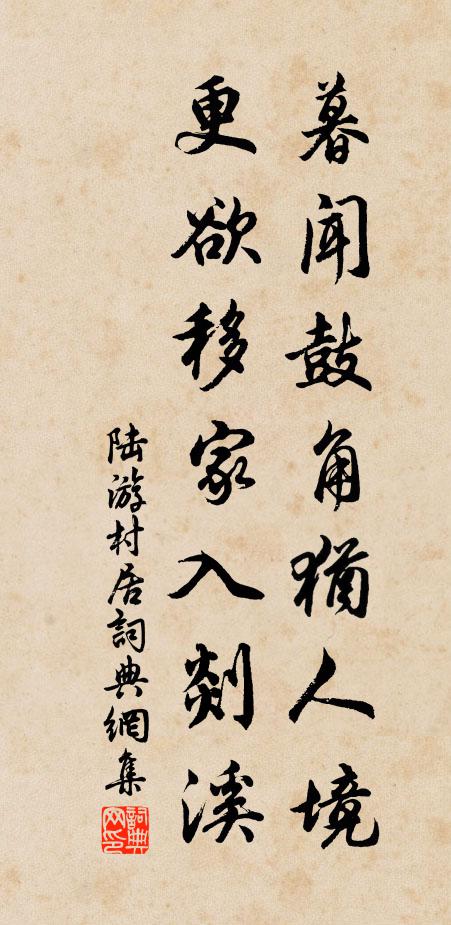 暮闻鼓角猶人境
更欲移家入剡溪
陆游村居詞典網集
詞典网印